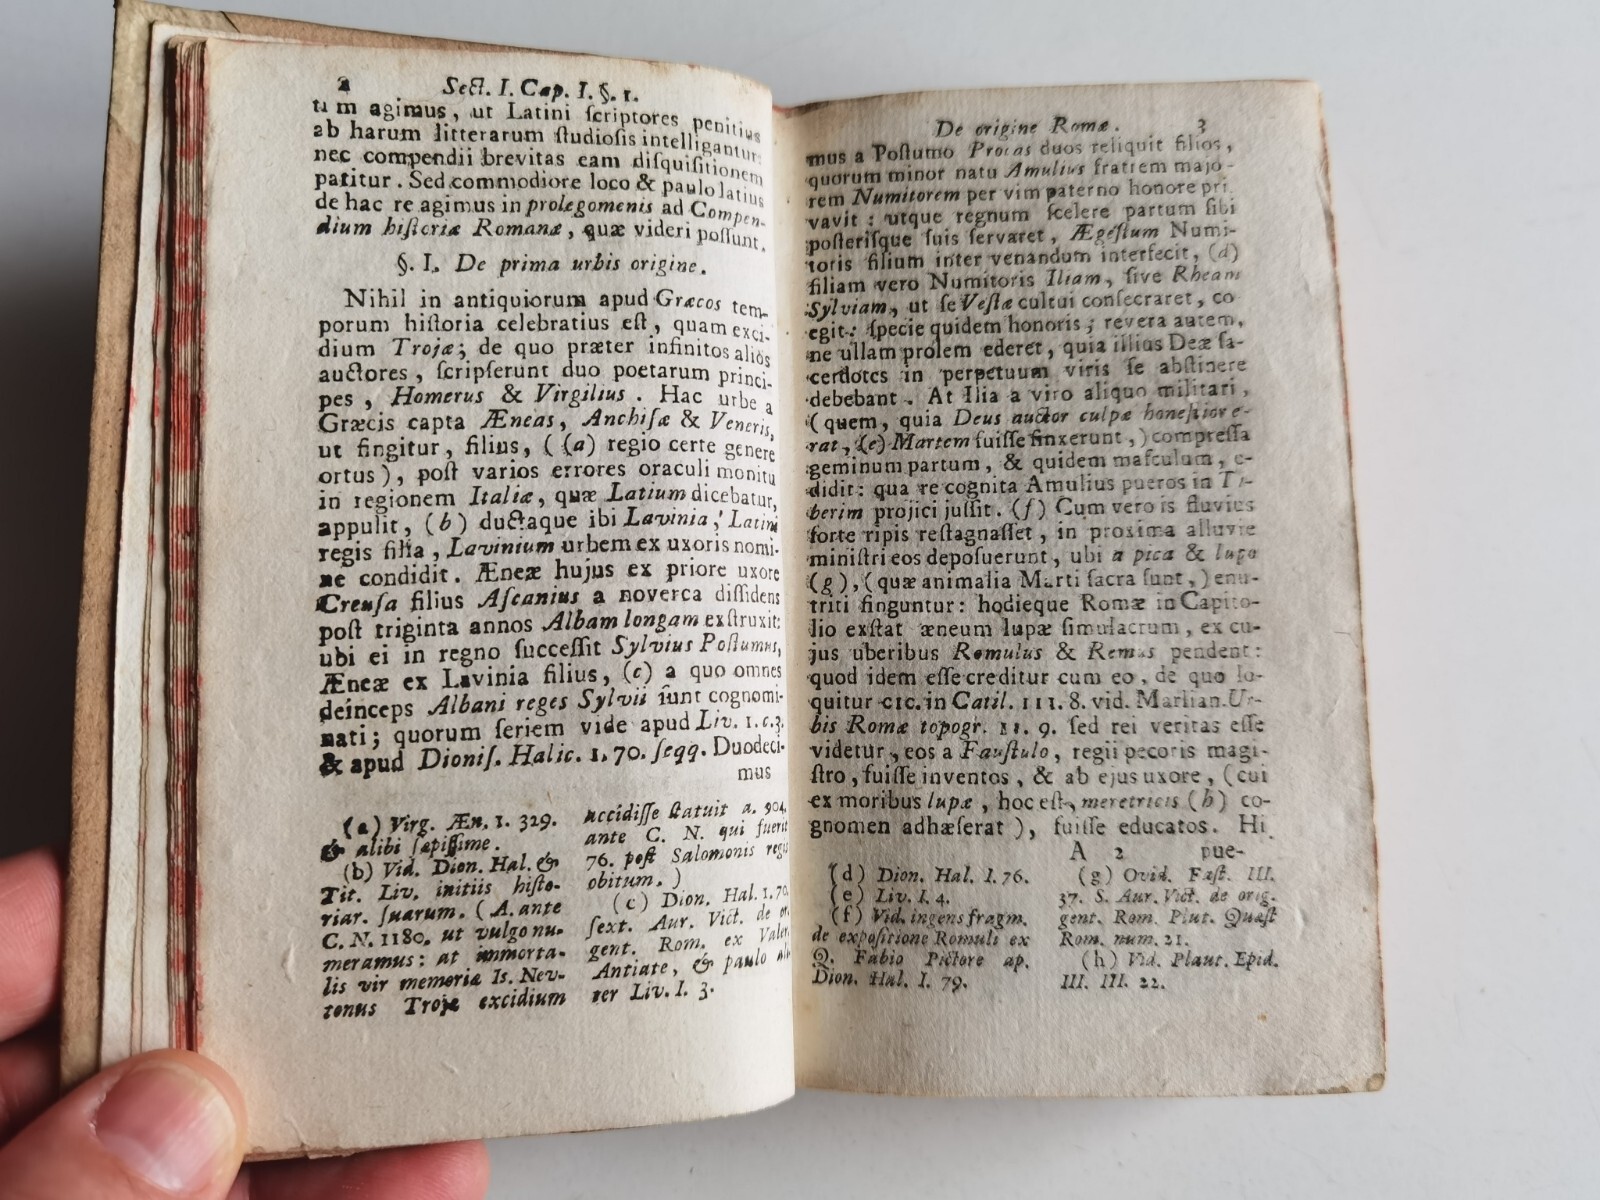 2 Sect. I. Cap. I. §. 1.
tum agimus, ut Latini ſcriptores penitius
ab harum litterarum ſtudioſis intelligantur:
nec compendii brevitas eam diſquiſitionem
patitur. Sed commodiore loco & paulo latius
de hac re agimus in prolegomenis ad Compen-
dium hiſtoriæ Romanæ, quæ videri poſſunt.
§. I. De prima urbis origine.
Nihil in antiquiorum apud Græcos tem-
porum hiſtoria celebratius eſt, quam exci-
dium Trojæ; de quo præter infinitos alios
auctores, ſcripſerunt duo poetarum princi-
pes, Homerus & Virgilius. Hac urbe a
Græcis capta Æneas, Anchiſæ & Veneris,
ut fingitur, filius, ((a) regio certe genere
ortus), poſt varios errores oraculi monitu
in regionem Italiæ, quæ Latium dicebatur,
appulit, (b) ductaque ibi Lavinia, Latini
regis filia, Lavinium urbem ex uxoris nomi-
ne condidit. Æneæ hujus ex priore uxore
Creuſa filius Aſcanius a noverca diſſidens
poſt triginta annos Albam longam exſtruxit:
ubi ei in regno ſucceſſit Sylvius Poſtumus,
Æneæ ex Lavinia filius, (c) a quo omnes
deinceps Albani reges Sylvii ſunt cognomi-
nati; quorum ſeriem vide apud Liv. 1. c. 3.
& apud Dioniſ. Halic. 1. 70. ſeqq. Duodeci-
mus
(a) Virg. Æn. 1. 329.
& alibi ſæpiſſime.
(b) Vid. Dion. Hal. &
Tit. Liv. initiis hiſto-
riar. ſuarum. (A. ante
C. N. 1180. ut vulgo nu-
meramus: at immorta-
lis vir memoriæ Is. Nev-
tonus Trojæ excidium
accidiſſe ſtatuit a. 904.
ante C. N. qui fuerit
76. poſt Salomonis regis
obitum.)
(c) Dion. Hal. 1. 70.
ſext. Aur. Vict. de or.
gent. Rom. ex Valer.
Antiate, & paulo ali-
ter Liv. I. 3.
De origine Romæ. 3
mus a Poſtumo Procas duos reliquit filios,
quorum minor natu Amulius fratrem majo-
rem Numitorem per vim paterno honore pri
vavit: utque regnum ſcelere partum ſibi
poſteriſque ſuis ſervaret, Ægeſtum Numi-
toris filium inter venandum interfecit, (d)
filiam vero Numitoris Iliam, ſive Rheam
Sylviam, ut ſe Veſtæ cultui conſecraret, co
egit: ſpecie quidem honoris; revera autem,
ne ullam prolem ederet, quia illius Deæ ſa-
cerdotes in perpetuum viris ſe abſtinere
debebant. At Ilia a viro aliquo militari,
(quem, quia Deus auctor culpæ honeſtior e-
rat, (e) Martem fuiſſe finxerunt,) compreſſa
geminum partum, & quidem maſculum, e-
didit: qua re cognita Amulius pueros in Ti-
berim projici juſſit. (f) Cum vero is fluvius
forte ripis reſtagnaſſet, in proxima alluvie
miniſtri eos depoſuerunt, ubi a pica & lupa
(g), (quæ animalia Marti ſacra ſunt,) enu-
triti finguntur: hodieque Romæ in Capito-
lio exſtat æneum lupæ ſimulacrum, ex cu-
jus uberibus Romulus & Remus pendent:
quod idem eſſe creditur cum eo, de quo lo-
quitur cic. in Catil. 111. 8. vid. Marlian. Ur-
bis Romæ topogr. 11. 9. ſed rei veritas eſſe
videtur, eos a Fauſtulo, regii pecoris magi-
ſtro, fuiſſe inventos, & ab ejus uxore, (cui
ex moribus lupæ, hoc eſt, meretricis (h) co-
gnomen adhæſerat), fuiſſe educatos. Hi
A 2 pue-
(d) Dion. Hal. I. 76.
(e) Liv. I. 4.
(f) Vid. ingens fragm.
de expoſitione Romuli ex
Q. Fabio Pictore ap.
Dion. Hal. I. 79.
(g) Ovid. Faſt. III.
37. S. Aur. Vict. de orig.
gent. Rom. Plut. Quæſt
Rom. num. 21.
(h) Vid. Plaut. Epid.
III. III. 22.